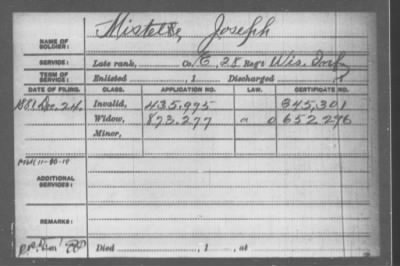 NAME OF SOLDIER: Mistelske, Joseph
SERVICE: Late rank, Co. E, 28 Reg't Wis. Inf.
TERM OF SERVICE: Enlisted , 1 Discharged , 1
DATE OF FILING. CLASS. APPLICATION NO. LAW. CERTIFICATE NO.
1881 Dec. 24. Invalid, 435.995 345,301
Widow, 873.277 652296
Minor,
ADDITIONAL SERVICES:
REMARKS:
Died , 1 , at